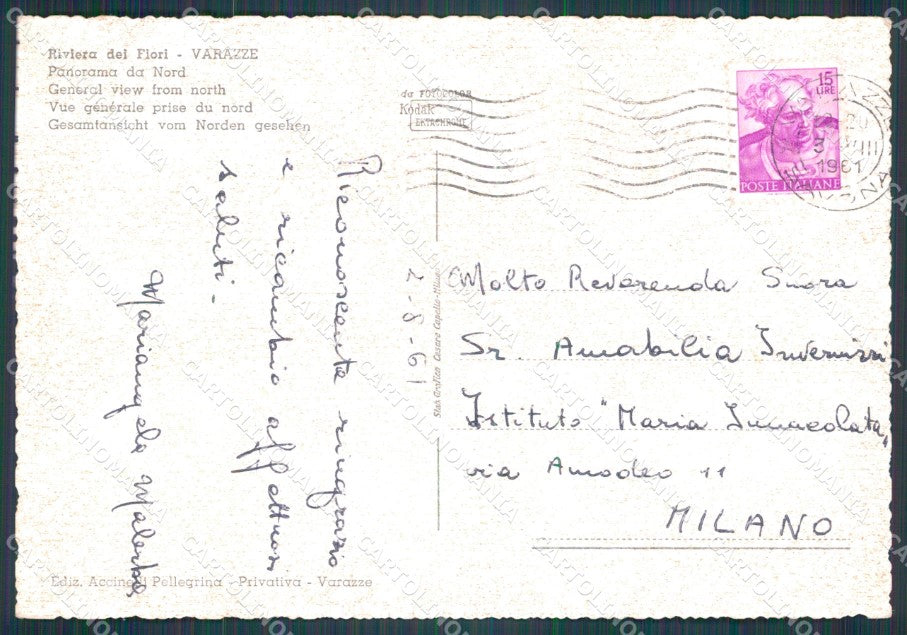 Riviera dei Fiori - VARAZZE
Panorama da Nord
General view from north
Vue générale prise du nord
Gesamtansicht vom Norden gesehen
da FOTOCOLOR
Kodak
EKTACHROME
15
LIRE
POSTE ITALIANE
1961
Riconoscente ringrazio
e ricambio affettuosi
saluti -
Mariangela Malerba
2-8-61
Stab. Grafico Cesare Capello - Milano
Molto Reverenda Suora
Sr. Amabilia Invernizzi
Istituto "Maria Immacolata"
via Amadeo 11
MILANO
Ediz. Accinelli Pellegrina - Privativa - Varazze
CARTOLINOMANIA